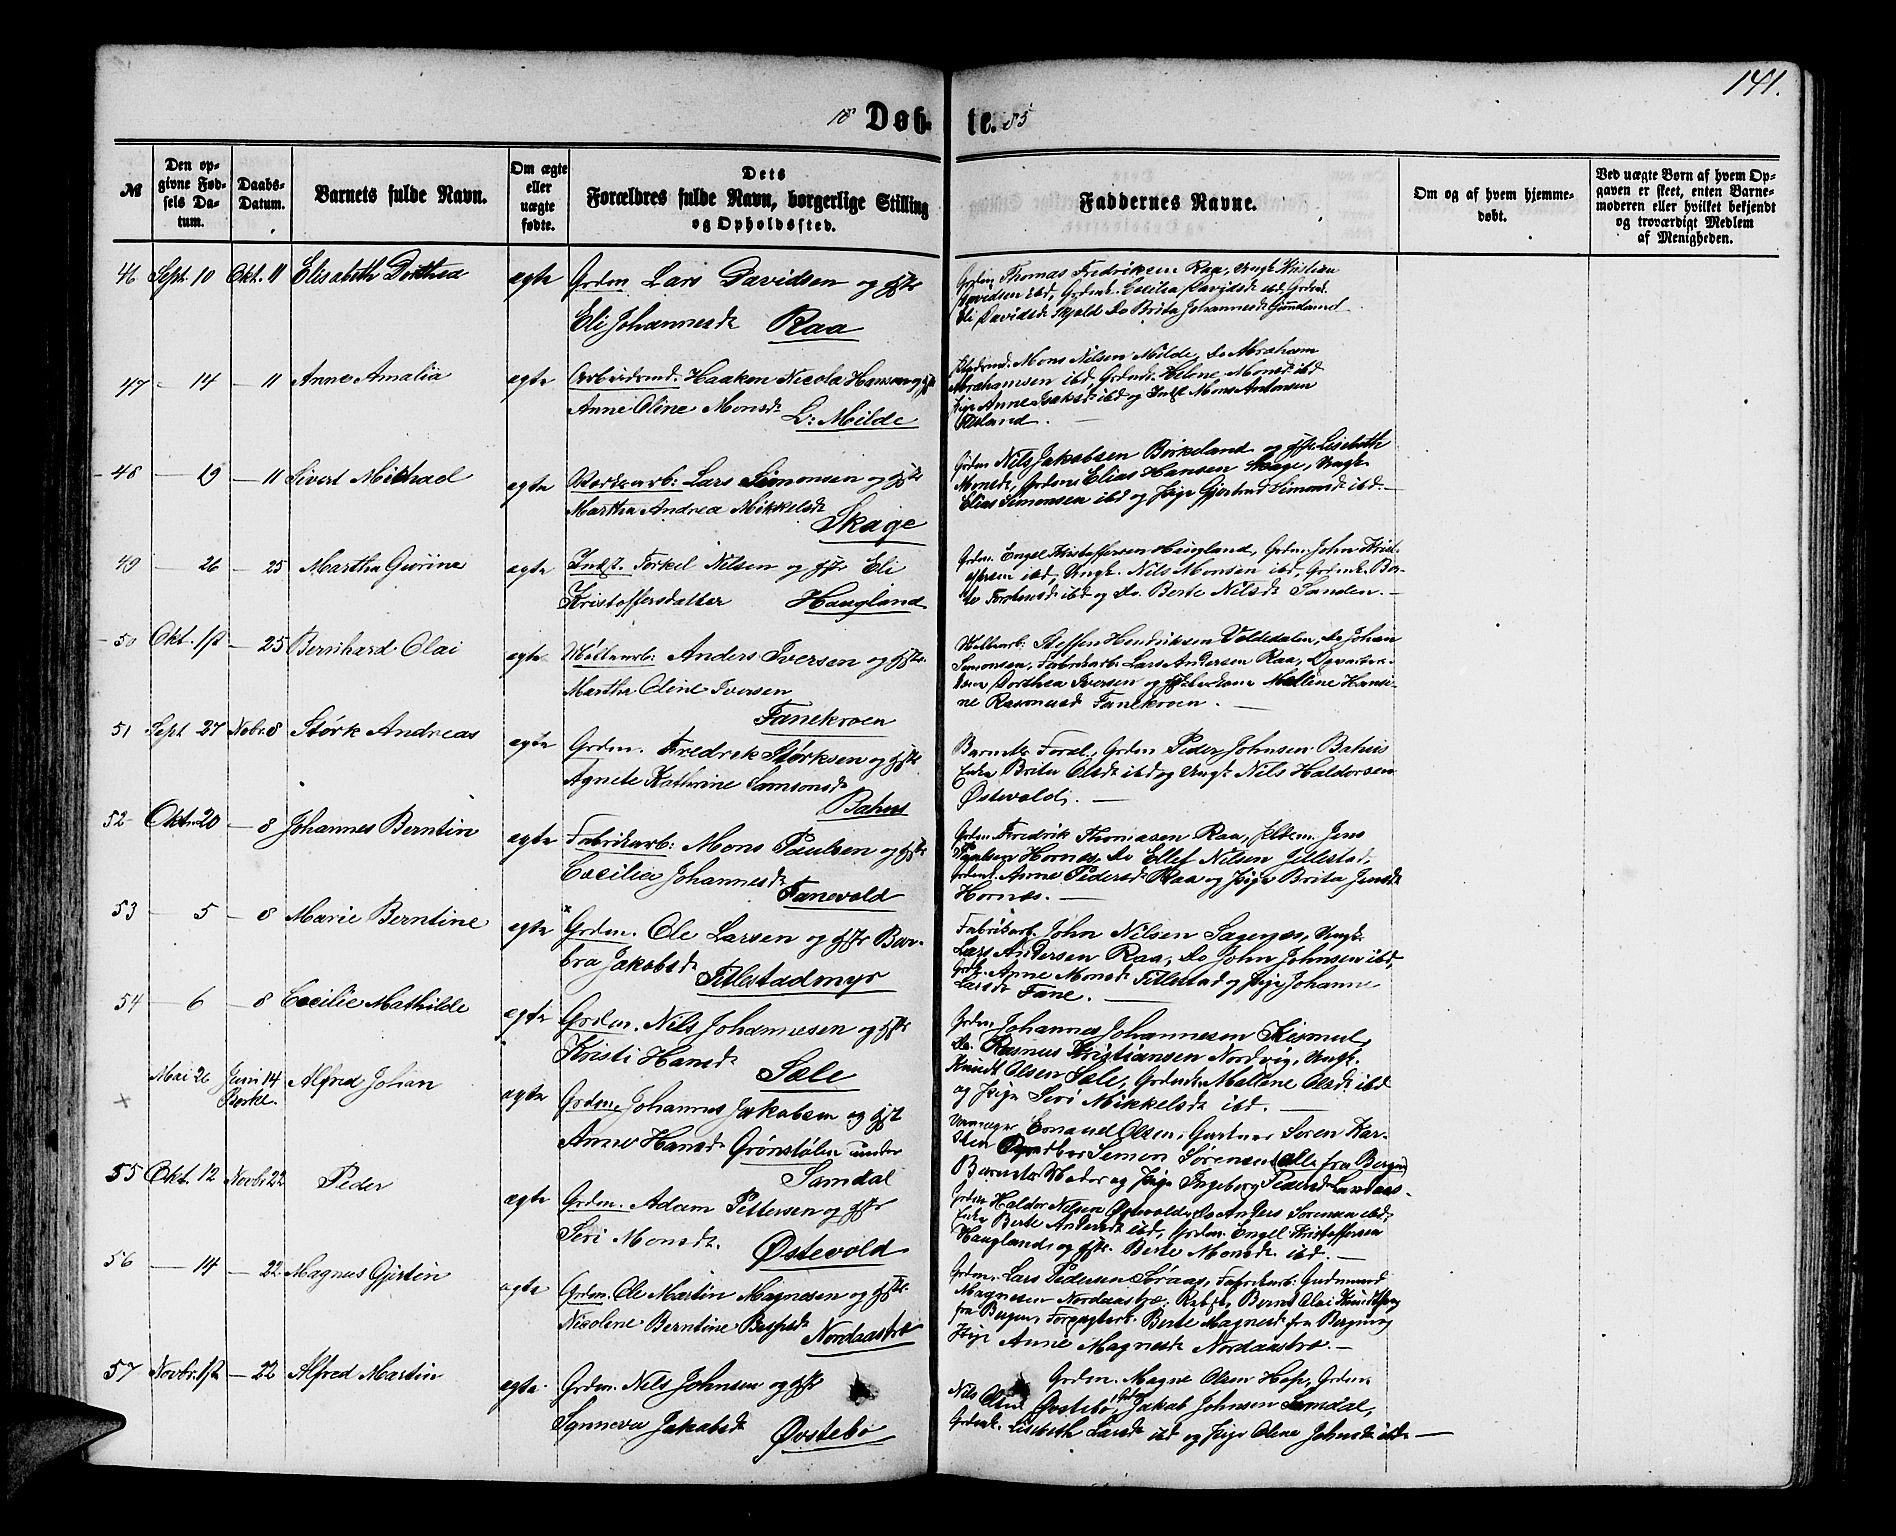 141.
18 Døb- te. 85
№
Den op-
givne Fød-
sels Da-
tum.
Daabs-
Datum.
Barnets fulde Navn.
Om ægte
eller
uægte
fødte.
Dets
Forældres fulde Navn, borgerlige Stilling
og Opholdssted.
Faddernes Navne.
Om og af hvem hjemme-
døbt.
Ved uægte Børn af hvem Op-
gaven er skeet, enten Barne-
moderen eller hvilket bekjendt
og troværdigt Medlem
af Menigheden.
46 Sept. 10 Okt. 11 Elisabeth Dorthea egte Grdm. Lars Davidsen og Hstr
Eli Johannesdr Raa
Grdm. Thomas Fredriksen Raa, Ungk. Kristian
Davidsen ibd, Grdmk. Cecilia Davidsdr ibd, Grdmk.
Eli Davidsdr Skjold Do Brita Johannesdr
47 - 14 - 11 Anne Amalia egte Arbeidsmd. Haaken Nicola Hansen og Hstr
Anne Oline Monsdr L: Milde
Mons Nilsen Milde, Do Abraham
Abrahamsen ibd, Grdmk. Helene Monsdr ibd
Pige Anne Isaksdr ibd og Indst Mons Antonsen
48 - 19 - 11 Sivert Mikhael egte Lars Simonsen og Hstr
Martha Andrea Mikkelsdr
Skage
Grdm. Nils Jakobsen Birkeland og Hstr. Lisebeth
Monsdr, Grdm. Elias Hansen Skage, Ungk.
Elias Simonsen ibd og Pige Gjertrud Simonsdr ibd. —
49 - 26 - 25 Martha Guriine egte Indst. Torkel Nilsen og Hstr Eli
Kristoffersdatter Haugland
Grdm. Engel Kristoffersen Haugland, Grdm. John Krist-
offersen ibd, Ungk. Nils Monsen ibd, Grdmk. Ber-
te ibd og Do. Berte Nilsdr Sanden. —
50 Okt. 1st - 25 Bernhard Olai egte Anders Iversen og Hstr.
Martha Oline Iversen
Fanekroen
Steffen Hendriksen Voldedalen, Do Johan
Simonsen, Fabrikarb: Lars Andersen Raa,
Dorthea Iversen og Mallene Hansi-
ne Rasmusdr Fanekroen. —
51 Sept 27 Nobr. 8 Størk Andreas egte Grdm. Fredrik Størksen og Hstr
Agnete Kathrine Samsonsdr
Bahus
Barnets Foræl., Grdm. Peder Johnsen Bahus
Enke Brita Olsdr ibd og Ungk. Nils Haldorsen
Østevold. —
52 Okt. 20 - 8 Johannes Berntin egte Fabrikarb: Mons Paulsen og Hstr
Cecilia Johannesdr
Fanevold
Grdm. Fredrik Thomasen Raa, Jens
Paulsen Hornes, Do Ellef Nilsen Titlestad,
Grdmk. Anne Pedersdr Raa og Pige Brita Jensdr
Hornes. —
53 - 5 - 8 Marie Berntine egte Grdm. Ole Larsen og Hstr Bar-
bra Jakobsdr
Titlestadmyr
Fabrikarb. John Nilsen Sagenæs, Ungk.
Lars Andersen Raa, Do John Johnsen ibd,
Grdk. Anne Monsdr Titlestad og Pige Johanne
Larsdr Fane. —
54 - 6 - 8 Cecilie Mathilde egte Grdm. Nils Johannesen og Hstr
Kristi Hansdr
Sæle
Grdm. Johannes Johannesen Kismul,
Do. Rasmus Kristiansen Nordvig, Ungk.
Knudt Olsen Sæle, Grdmk. Mallene Olsdr ibd
og Pige Seri Mikkelsdr ibd. —
x Mai 26 Juni 14 Alfred Johan egte Grdm. Johannes Jakobsen og Hstr
Kirke.
Anne Hansdr Grønstølen under
Samdal
Emanuel Olsen, Gartner Søren Kar-
sten Simon Sørensen (alle fra Bergen)
Barnets Moder og Pige Ingeborg Pedersdr Landaas.
55 Okt. 12 Novbr. 22 Peder egte Grdm. Adam Pettersen og Hstr
Seri Monsdr. Østevold
Grdm. Haldor Nilsen Østevold, Do Anders Sørensen ibd,
Enke Berte Andersdr ibd, Grdm. Engel Kristoffersen
Haugland, og Hstr. Berte Monsdr ibd. —
56 - 14 - 22 Magnus Gjertin egte Grdm. Ole Martin Magnesen og Hstr
Nicoline Berntine
Nordaasbrø
Grdm. Lars Pedersen Søraas, Fabrikarb: Gudmund
Magnesen Nordaasbrø, Bernt Olai
fra Bergen, Berte Magnesdr fra Bergen og
Pige Anne Magnesdr Nordaasbrø. —
57 Novbr. 1st - 22 Alfred Martin egte. Grdm. Nils Johnsen og Hstr
Synneva Jakobsdr
Østebø
Grdm. Magne Olsen Hop, Grdm.
Nils Olsen Østebø, Grdm Jakob Johnsen Samdal,
Grdmk. Lisebeth Larsdr ibd og Pige Oline Johnsdr ibd. —